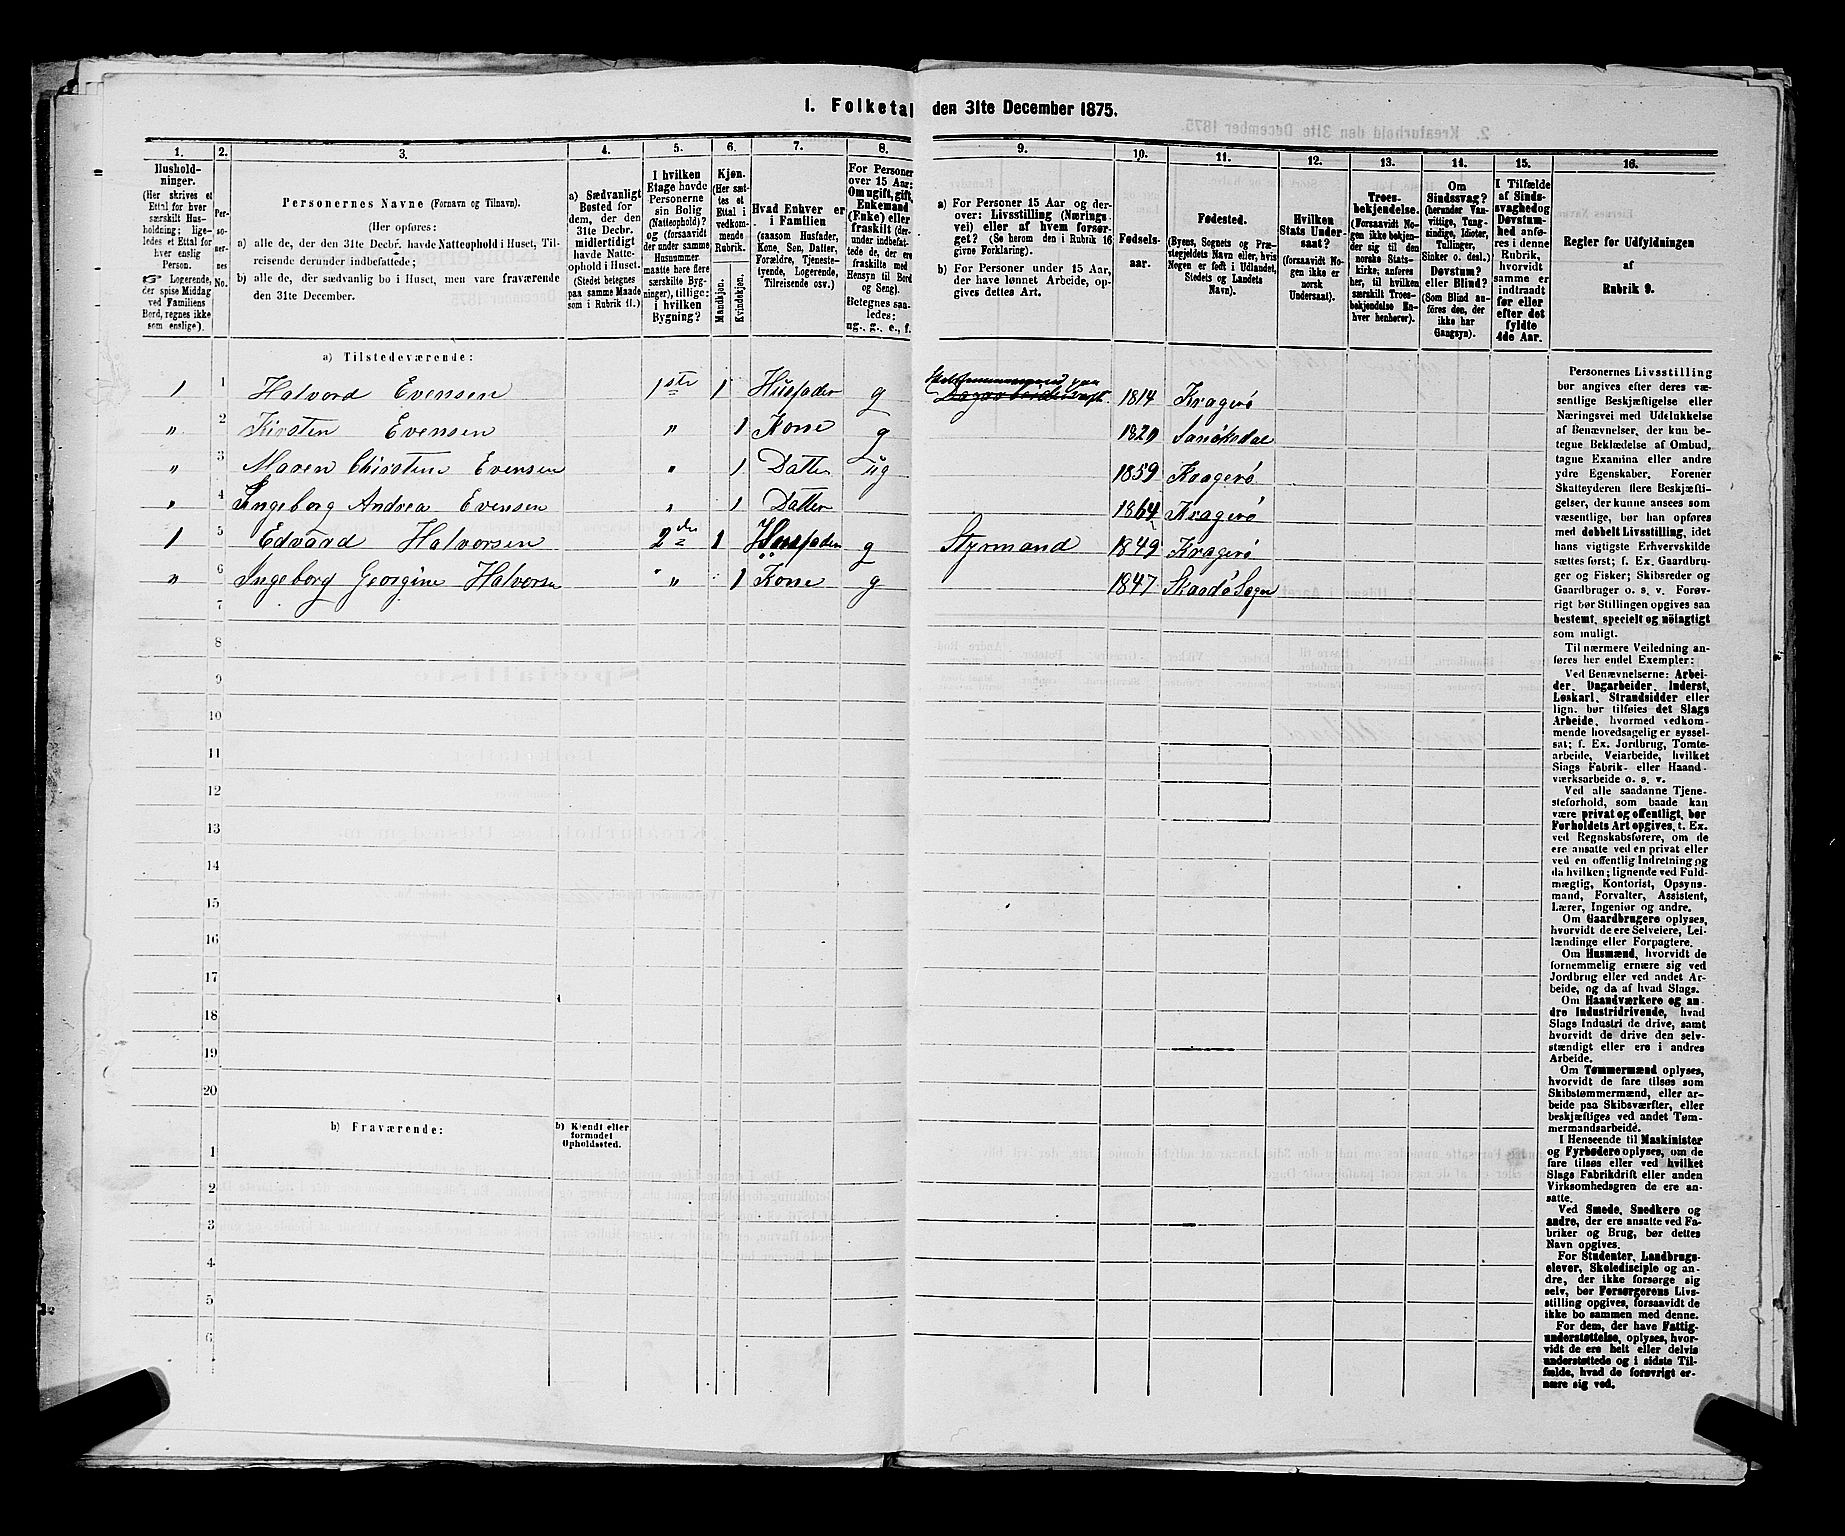 1. Folketal den 31te December 1875.
1. 2. 3. 4. 5. 6. 7. 8. 9. 10. 11. 12. 13. 14. 15. 16.
Hushold-
ninger.
(Her skrives et
Ettal for hver
særskilt Hus-
holdning; lige-
ledes et Ettal for
hver enslig
Person.
Logerende,
der spise Middag
ved Familiens
Bord, regnes ikke
som enslige).
Per-
so-
ner-
nes
No.
Personernes Navne (Fornavn og Tilnavn).
(Her opføres:
a) alle de, der den 31te Decbr. havde Natteophold i Huset, Til-
reisende derunder indbefattede;
b) alle de, der sædvanlig bo i Huset, men vare fraværende
den 31te December.
a) Sædvanligt
Bosted for
dem, der den
31te Decbr.
midlertidigt
havde Natte-
ophold i Huset.
(Stedet betegnes
paa samme Maade
som i Rubrik 11.)
I hvilken
Etage havde
Personerne
sin Bolig
(Natteophold)?
og (forsaavidt
der under samme
Husnummer
maatte høre flere
særskilte Byg-
ninger), tillige:
i hvilken
Bygning?
Kjøn.
(Her sæt-
tes et
Ettal i
vedkom-
mende
Rubrik.
Mandkjøn.
Kvindekjøn.
Hvad Enhver er
i Familien
(saasom Husfader,
Kone, Søn, Datter,
Forældre, Tjeneste-
tyende, Logerende,
Tilreisende osv.)
For Personer
over 15 Aar:
Om ugift, gift,
Enkemand
(Enke) eller
fraskilt (der-
under indbefat-
tede de, der
ere fraskilte med
Hensyn til Bord
og Seng).
Betegnes saa-
ledes:
ug., g., e., f.
a) For Personer 15 Aar og der-
over: Livsstilling (Nærings-
vei) eller af hvem forsør-
get? (Se herom den i Rubrik 16
givne Forklaring).
b) For Personer under 15 Aar,
der have lønnet Arbeide, op-
gives dettes Art.
Fødsels-
aar.
Fødested.
(Byens, Sognets og Præ-
stegjeldets Navn eller, hvis
Nogen er født i Udlandet,
Stedets og Landets
Navn).
Hvilken
Stats Under-
saat?
(forsaavidt No-
gen ikke er
norsk
Undersaat).
Troes-
bekjendelse.
(Forsaavidt No-
gen ikke bekjen-
der sig til den
norske Stats-
kirke, anføres
her, til hvilken
særskilt Troes-
bekjendelse En-
hver henhører).
Om
Sindssvag?
(herunder Van-
vittige, Tung-
sindige, Idioter,
Tullinger,
Sinker o. desl.)
Døvstum?
eller Blind?
(Som Blind an-
føres den, der
ikke har
Gangsyn).
I Tilfælde
af Sinds-
svaghed og
Døvstum-
hed anfø-
res i denne
Rubrik,
hvorvidt
samme er
indtraadt
før eller
efter det
fyldte
4de Aar.
Regler for Udfyldningen
af
Rubrik 9.
a) Tilstedeværende:
1 1 Halvord Evensen 1ste 1 Husfader g 1814 Kragerö
" 2 Kirsten Evensen " 1 Kone g 1820 Sanökedal
" 3 Maren Chirstine Evensen " 1 Datter ug 1859 Kragerö
" 4 Ingeborg Andrea Evensen " 1 Datter 1864 Kragerö
1 5 Edvard Halvorsen 2den 1 Husfader g Styrmand 1849 Kragerö
" 6 Ingeborg Georgine Halvorsen " 1 Kone g 1847 Skaadö Sogn
7
8
9
10
11
12
13
14
15
16
17
18
19
20
b) Fraværende:
b) Kjendt eller
formodet
Opholdssted.
1
2
3
4
5
6
Personernes Livsstilling
bør angives efter deres væ-
sentlige Beskjæftigelse eller
Næringsvei med Udelukkelse
af Benævnelser, der kun be-
tegne Beklædelse af Ombud,
tagne Examina eller andre
ydre Egenskaber. Forener
Skatteyderen flere Beskjæfti-
gelser, der kunne ansees som
væsentlige, bør han opføres
med dobbelt Livsstilling, idet
hans vigtigste Erhvervskilde
sættes først; f. Ex. Gaardbru-
ger og Fisker; Skibsreder og
Gaardbruger o. s. v. Forøv-
rigt bør Stillingen opgives saa
bestemt, specielt og nöiagtigt
som muligt.
Til nærmere Veiledning an-
føres her endel Exempler:
Ved Benævnelserne: Arbei-
der, Dagarbeider, Inderst,
Løskarl, Strandsidder eller
lign. bør tilføies det Slags
Arbeide, hvormed vedkom-
mende hovedsagelig er syssel-
sat; f. Ex. Jordbrug, Tomte-
arbeide, Veiarbeide, hvilket
Slags Fabrik- eller Haand-
værksarbeide o. s. v.
Ved alle saadanne Tjene-
steforhold, som baade kan
være privat og offentligt, bør
Forholdets Art opgives, t. Ex.
ved Regnskabsførere, om de
ere ansatte ved en privat eller
ved en offentlig Indretning og
da hvilken; lignende ved Fuld-
mægtig, Kontorist, Opsyns-
mand, Forvalter, Assistent,
Lærer, Ingeniør og andre.
Om Gaardbrugere oplyses,
hvorvidt de ere Selveiere, Lei-
lændinge eller Forpagtere.
Om Husmænd, hvorvidt de
fornemmelig ernære sig ved
Jordbrug eller ved andet Ar-
beide, og da af hvad Slags.
Om Haandværkere og an-
dre Industridrivende, hvad
Slags Industri de drive, samt
hvorvidt de drive den selv-
stændigt eller ere i andres
Arbeide.
Om Tømmermænd oplyses,
hvorvidt de fare tilsøs som
Skibstømmermænd, eller ar-
beide paa Skibsværfter, eller
beskjæftiges ved andet Tøm-
mermandsarbeide.
I Henseende til Maskinister
og Fyrbødere oplyses, om de
fare tilsøs eller ved hvilket
Slags Fabrikdrift eller anden
Virksomhedsgren de ere an-
satte.
Ved Smede, Snedkere og
andre, der ere ansatte ved Fa-
briker og Brug, bør dettes
Navn opgives.
For Studenter, Landbrugs-
elever, Skoledisciple og an-
dre, der ikke forsørge sig
selv, bør Forsørgerens Livs-
stilling opgives, forsaavidt de
ikke bo sammen med denne.
For dem, der have Fattig-
understøttelse, oplyses, hvor-
vidt de ere helt eller delvis
understøttede og i sidste Til-
fælde, hvad de forøvrigt er-
nære sig ved.